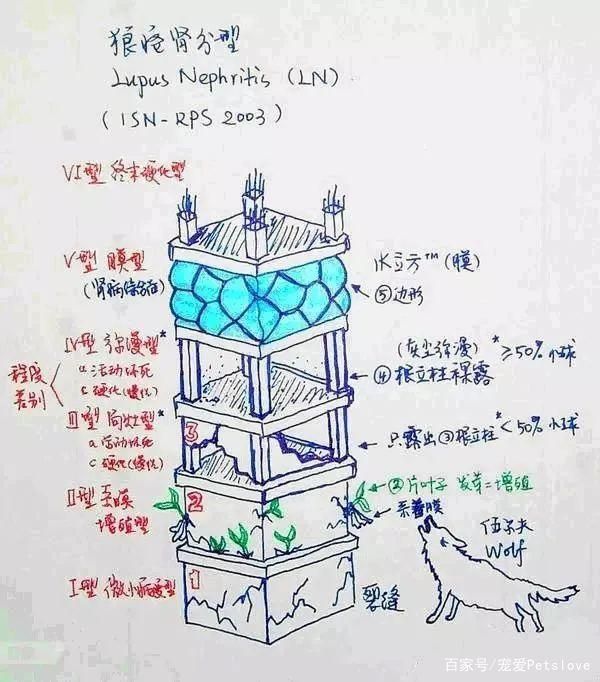 狼疮肾分型
Lupus Nephritis (LN).
(ISN-RPS 2003)
VI型 终末硬化型
V型 膜型
(肾病综合征)
水立方™(膜)
⑤边形
IV型 弥漫型*
a 活动坏死
c 硬化(慢性)
(灰尘弥漫)* ≥50%小球
④根立柱裸露
程度
差别
III型 局灶型*
a 活动坏死
c 硬化(慢性)
3
只露出③根立柱* <50%小球
II型 系膜
增殖型
2
②片叶子 发芽=增殖
系膜
I型 微小病变型
1
裂缝
伍尔夫
Wolf
百家号/宠爱Petslove